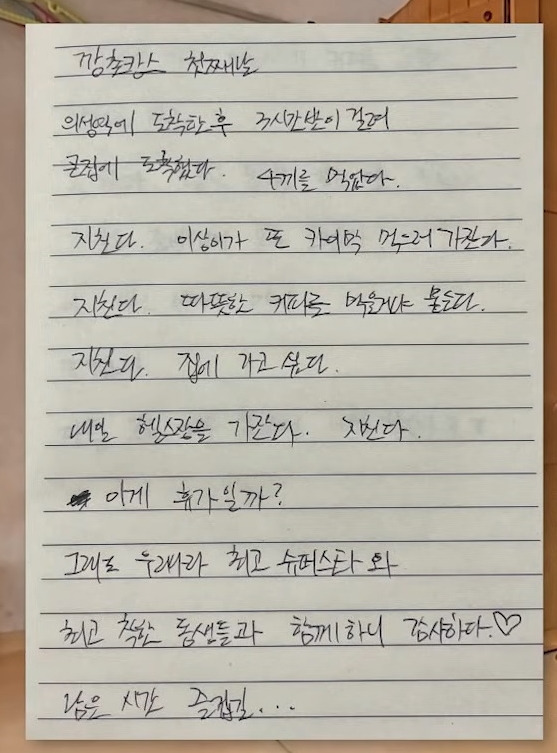 깡촌캉스 첫째날
의성역에 도착한 후 3시간반이 걸려
큰집에 도착했다. 4끼를 먹었다.
지친다. 이상이가 또 카이막 먹으러 가잔다.
지친다. 따뜻한 커피를 먹을거냐 물는다.
지친다. 집에 가고 싶다.
내일 헬스장을 가잔다. 지친다.
이게 휴가일까?
그래도 우리나라 최고 슈퍼스타와
최고 착한 동생들과 함께하니 감사하다.♡
남은 시간 즐겁길...